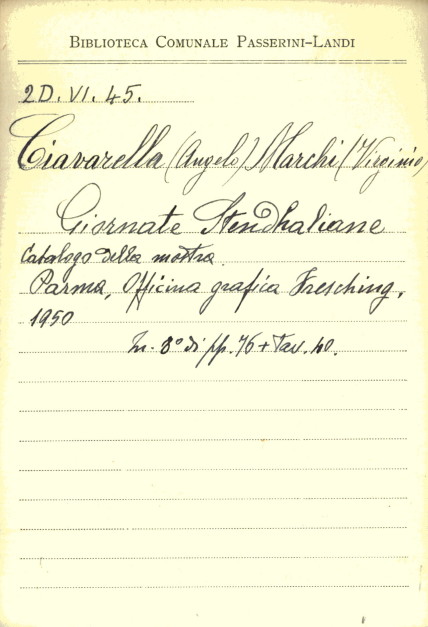 BIBLIOTECA COMUNALE PASSERINI-LANDI
2D. VI. 45.
Ciavarella (Angelo) Marchi (Virginio)
Giornate Stendhaliane
Catalogo della mostra.
Parma, Officina grafica Fresching,
1950
In- 8° di pp. 76 + Tav. 40.